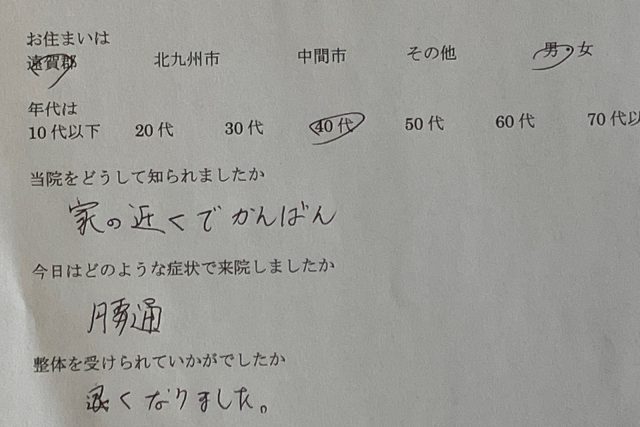 お住まいは
遠賀郡 北九州市 中間市 その他 男・女
年代は
10代以下 20代 30代 40代 50代 60代 70代以
当院をどうして知られましたか
家の近くでかんばん
今日はどのような症状で来院しましたか
腰通
整体を受けられていかがでしたか
良くなりました。